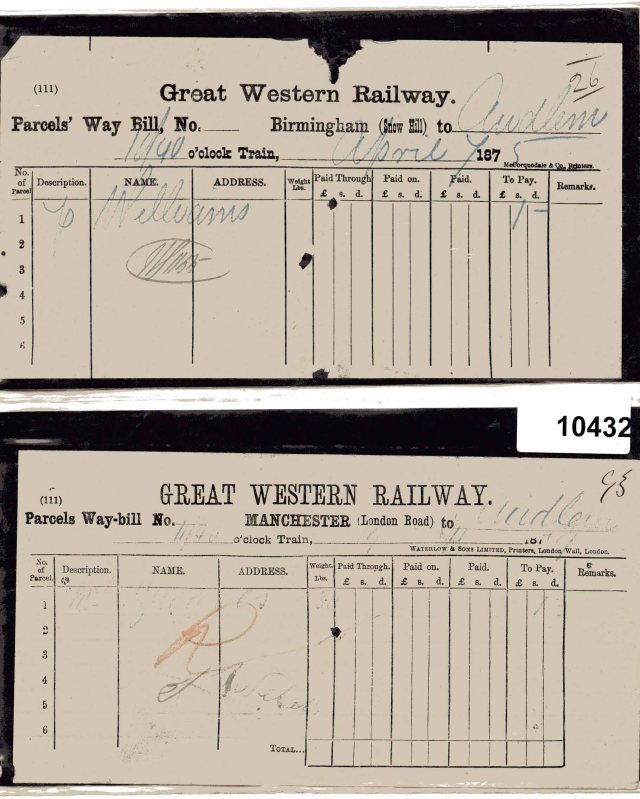 26
(111)
Great Western Railway.
Parcels' Way Bill, No. Birmingham (Snow Hill) to Audlem
10/40 o'clock Train, April 7 1875
McCorquodale & Co., Printers.
No. of Parcel Description. NAME. ADDRESS. Weight Lbs. Paid Through £ s. d. Paid on. £ s. d. Paid. £ s. d. To Pay. £ s. d. Remarks.
1 Williams 1/-
2
3
4
5
6
10432
(111)
GREAT WESTERN RAILWAY.
Parcels Way-bill No. MANCHESTER (London Road) to Audlem
o'clock Train, 187
WATERLOW & SONS LIMITED, Printers, London Wall, London.
No. of Parcel. Description. NAME. ADDRESS. Weight. Lbs. Paid Through. £ s. d. Paid on. £ s. d. Paid. £ s. d. To Pay. £ s. d. Remarks.
1
2
3
4
5
6
TOTAL...